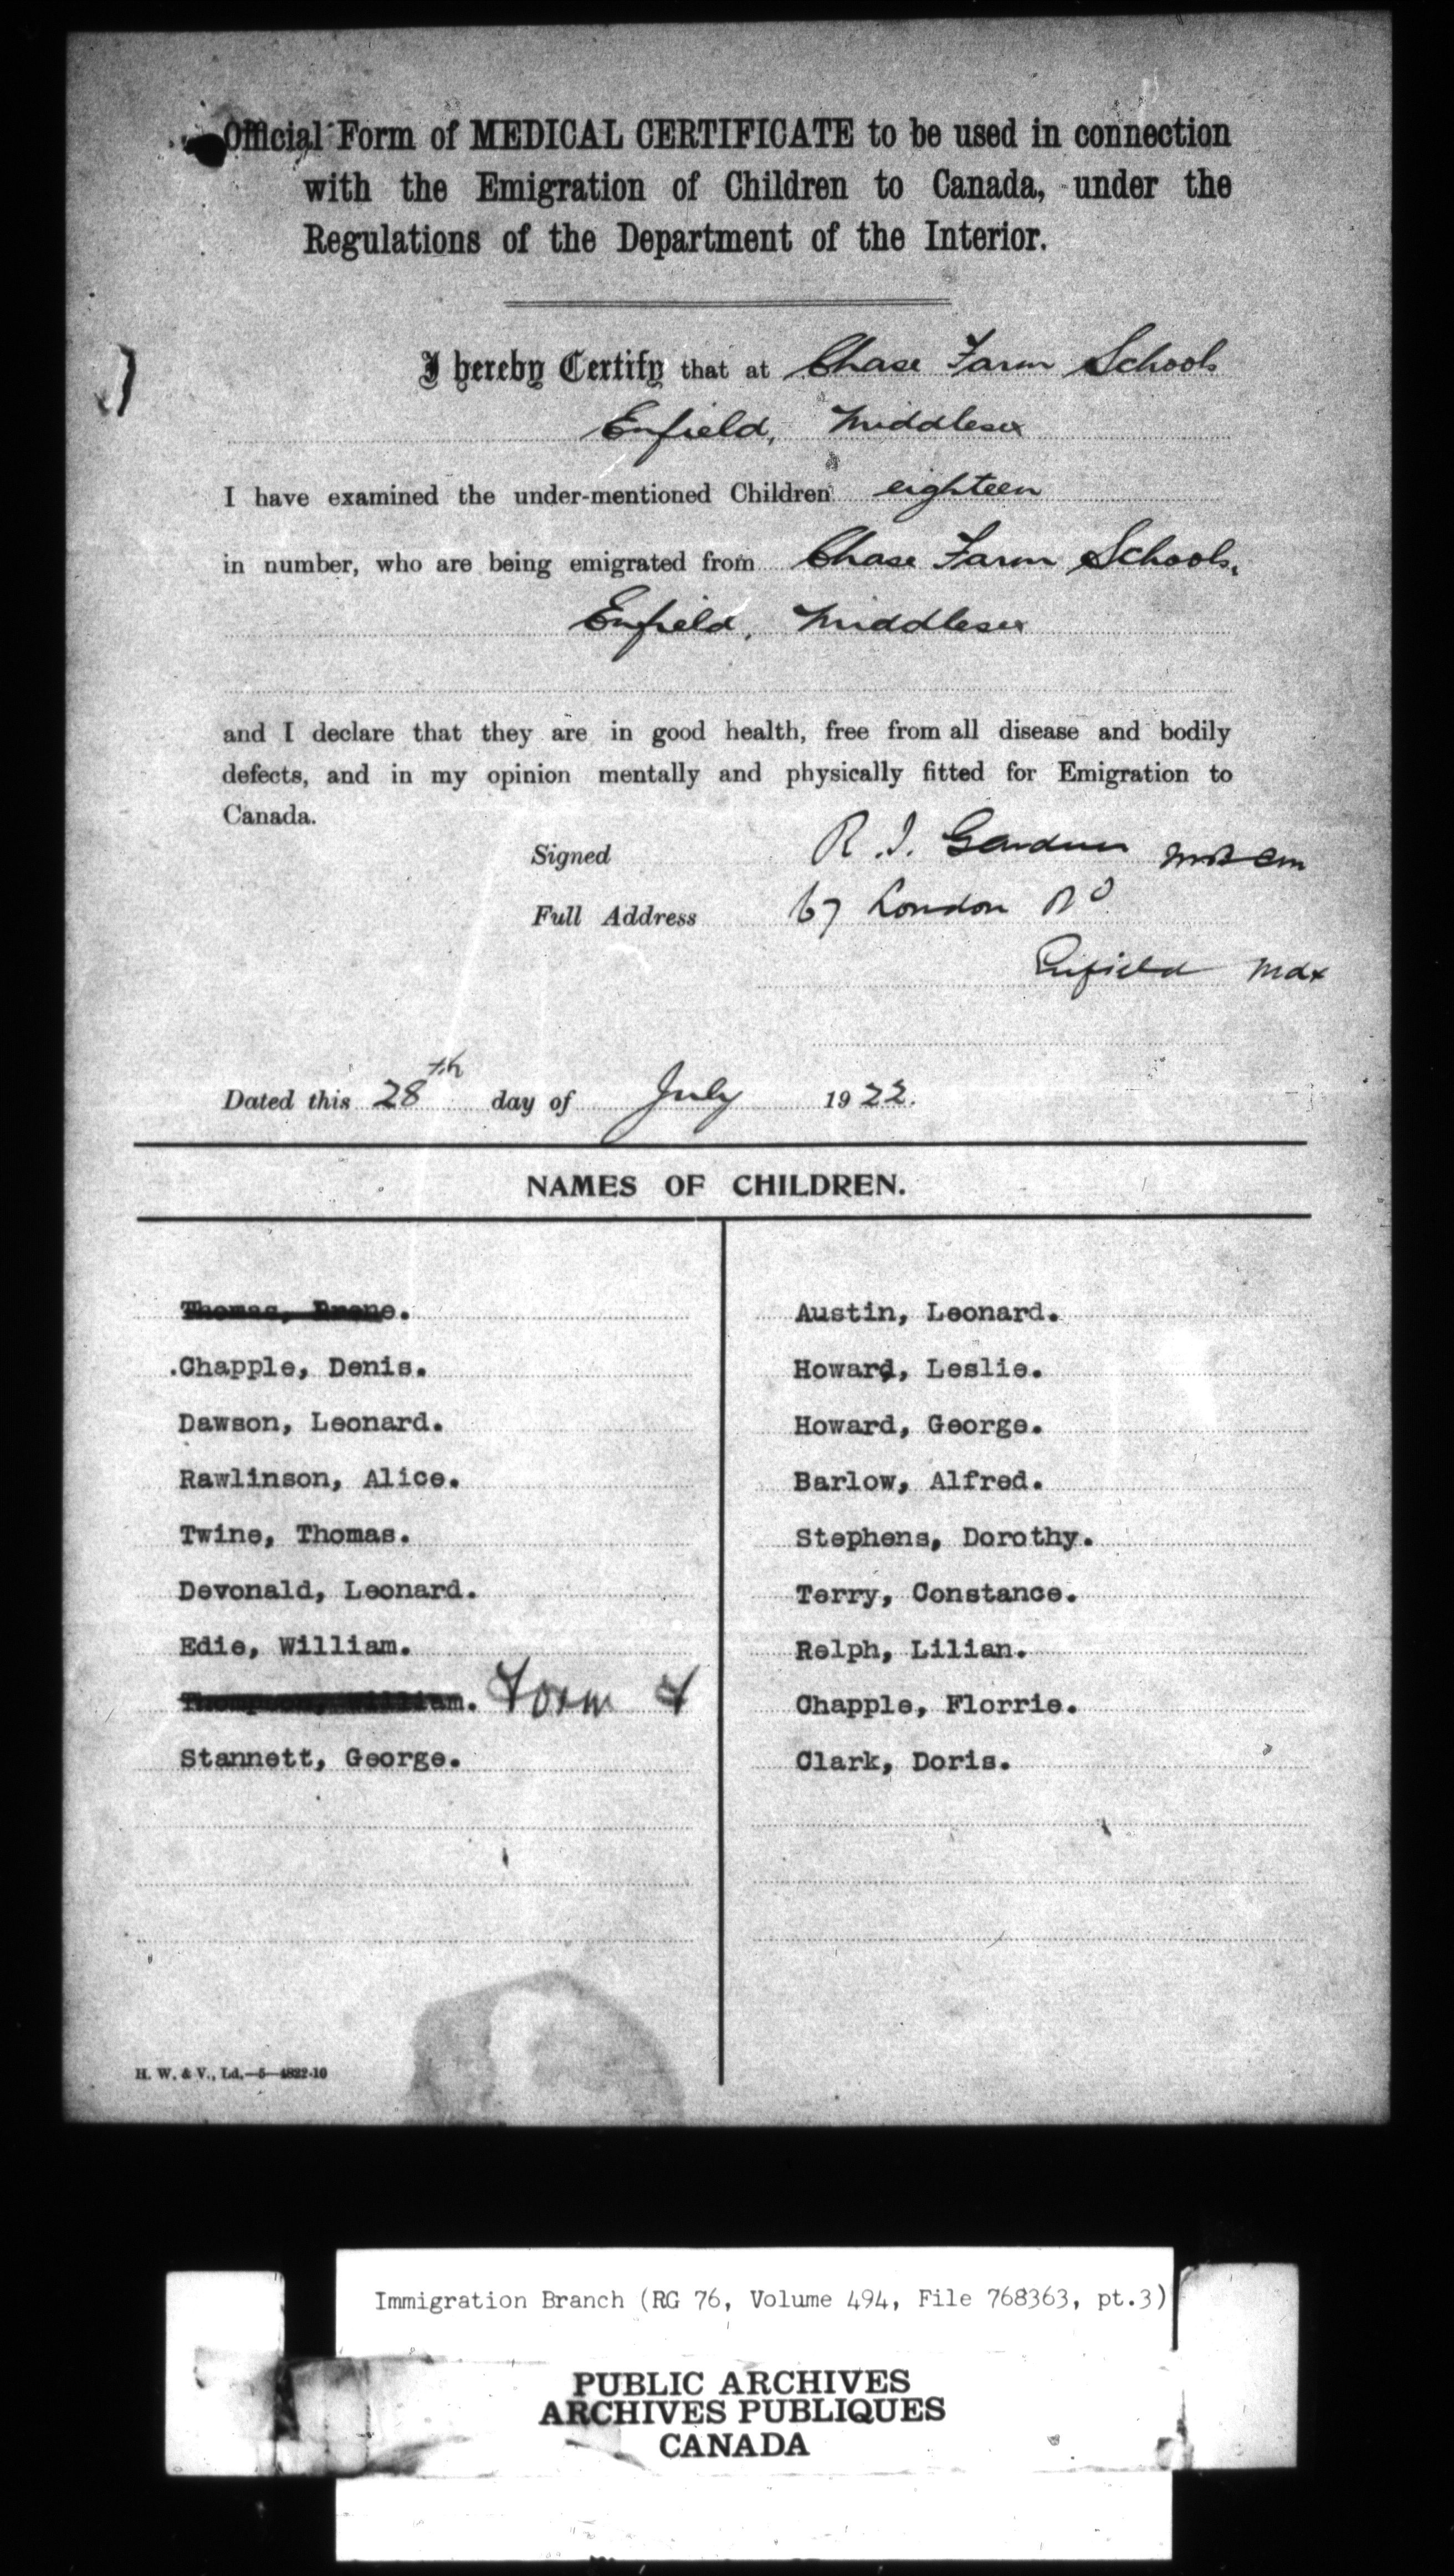 Official Form of MEDICAL CERTIFICATE to be used in connection
with the Emigration of Children to Canada, under the
Regulations of the Department of the Interior.
I hereby Certify that at Chase Farm Schools
Enfield, Middlesex
I have examined the under-mentioned Children eighteen
in number, who are being emigrated from Chase Farm Schools,
Enfield, Middlesex
and I declare that they are in good health, free from all disease and bodily
defects, and in my opinion mentally and physically fitted for Emigration to
Canada.
Signed R. J. Gardner
Full Address 67 London Rd
Enfield Mdx
Dated this 28th day of July 1922.
NAMES OF CHILDREN.
Thomas,
Chapple, Denis.
Dawson, Leonard.
Rawlinson, Alice.
Twine, Thomas.
Devonald, Leonard.
Edie, William.
Thompson, William. Form 4
Stannett, George.
Austin, Leonard.
Howard, Leslie.
Howard, George.
Barlow, Alfred.
Stephens, Dorothy.
Terry, Constance.
Relph, Lilian.
Chapple, Florrie.
Clark, Doris.
H. W. & V., Ld.—5—4822-10
Immigration Branch (RG 76, Volume 494, File 768363, pt.3)
PUBLIC ARCHIVES
ARCHIVES PUBLIQUES
CANADA